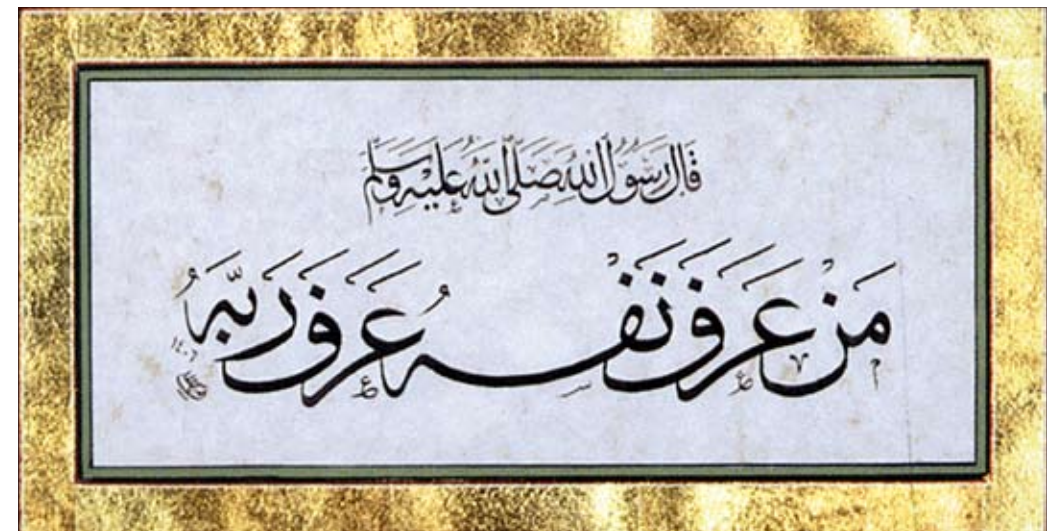 قَالَ رَسُولُ اللهِ صَلَّى اللهُ عَلَيْهِ وَسَلَّمَ
مَنْ عَرَفَ نَفْسَهُ عَرَفَ رَبَّهُ
١٤٠٦